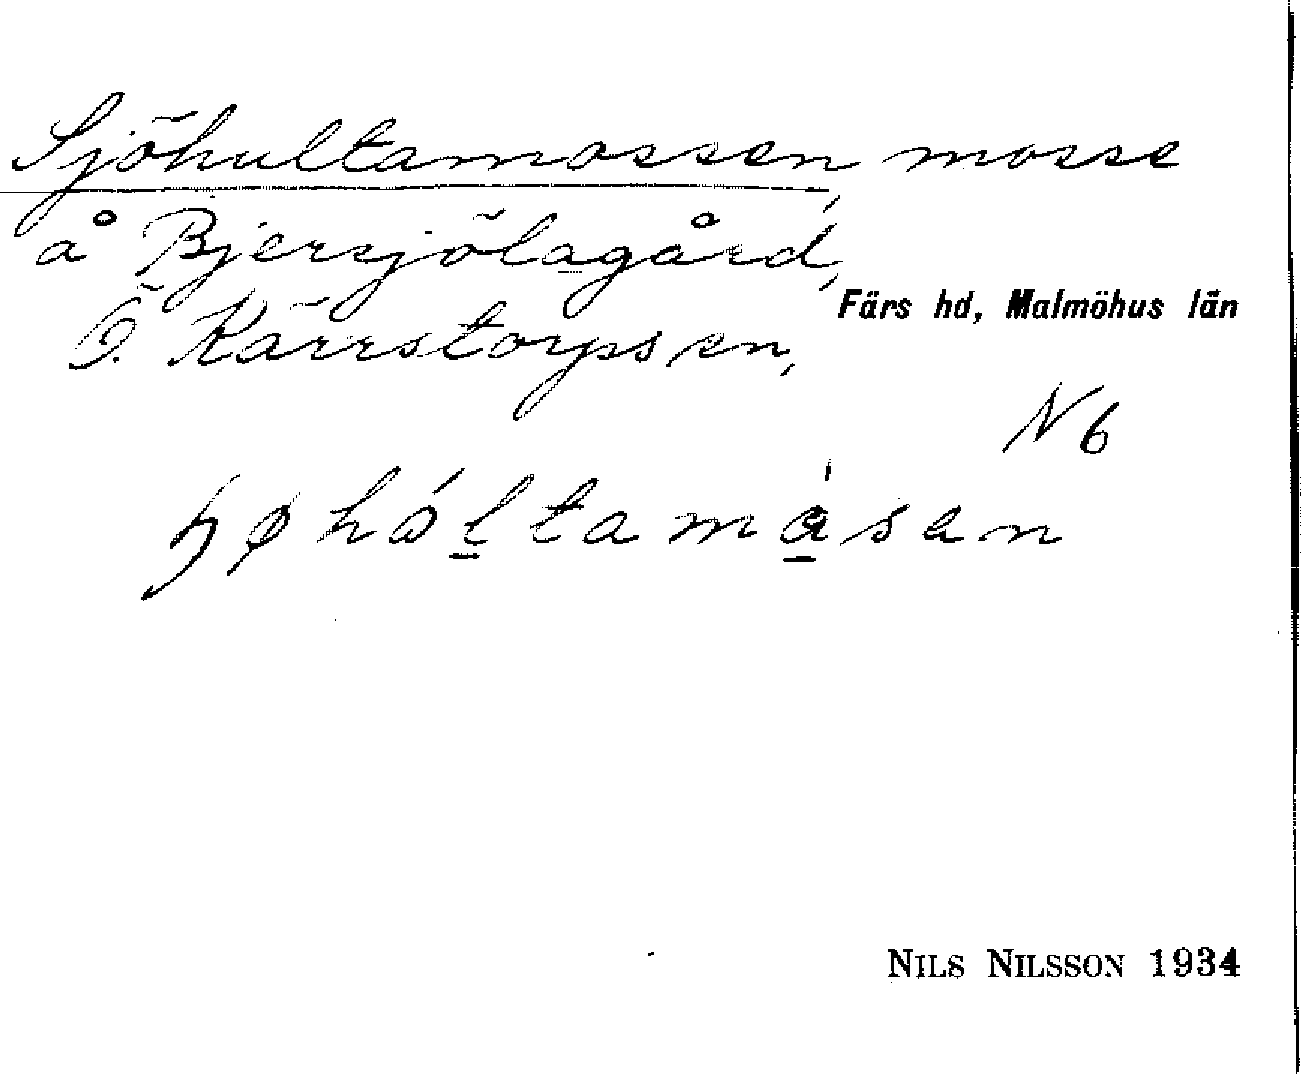 Sjöhultamossen, mosse
å Bjersjölagård,
Färs hd, Malmöhus län
Ö. Kärrstorps sn,
N 6
NILS NILSSON 1934